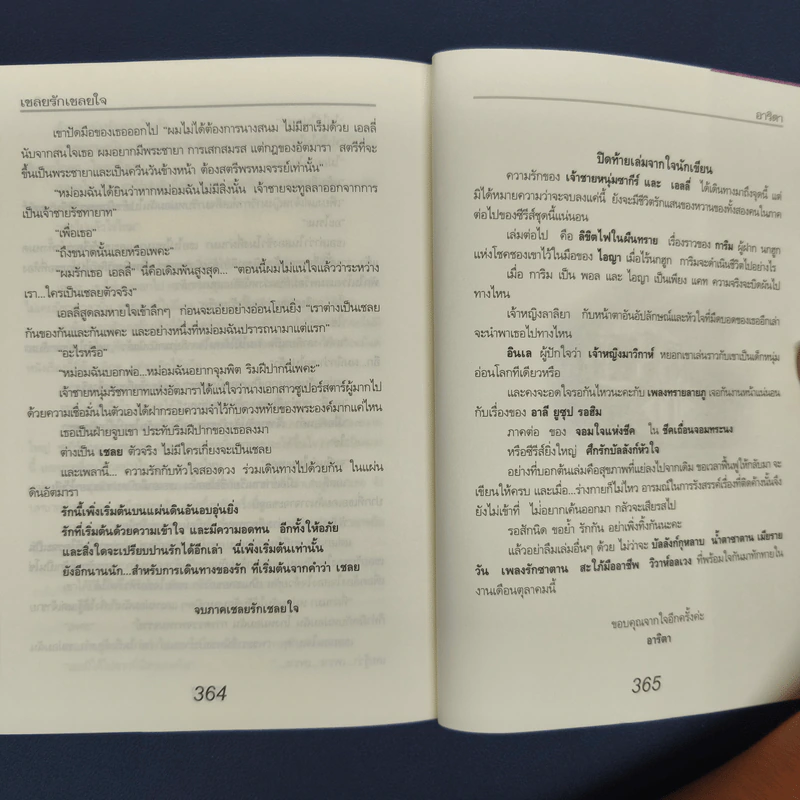 เชลยรักเชลยใจ
เขาปัดมือของเธอออกไป "ผมไม่ได้ต้องการนางสนม ไม่มีฮาเร็มด้วย เอลลี่
นับจากสนใจเธอ ผมอยากมีพระชายา การเสกสมรส แต่กฎของอัตมารา สตรีที่จะ
ขึ้นเป็นพระชายาและเป็นควีนวันข้างหน้า ต้องสตรีพรหมจรรย์เท่านั้น"
"หม่อมฉันได้ยินว่าหากหม่อมฉันไม่มีสิ่งนั้น เจ้าชายจะทูลลาออกจากการ
เป็นเจ้าชายรัชทายาท"
"เพื่อเธอ"
"ถึงขนาดนั้นเลยหรือเพคะ"
"ผมรักเธอ เอลลี่" นี่คือเดิมพันสูงสุด... "ตอนนี้ผมไม่แน่ใจแล้วว่าระหว่าง
เรา...ใครเป็นเชลยตัวจริง"
เอลลี่สูดลมหายใจเข้าลึกๆ ก่อนจะเอ่ยอย่างอ่อนโยนยิ่ง "เราต่างเป็นเชลย
กันของกันและกันเพคะ และอย่างหนึ่งที่หม่อมฉันปรารถนามาแต่แรก"
"อะไรหรือ"
"หม่อมฉันบอกพ่อ...หม่อมฉันอยากจุมพิต ริมฝีปากนี้เพคะ"
เจ้าชายหนุ่มรัชทายาทแห่งอัตมาราได้แน่ใจว่านางเอกสาวซูเปอร์สตาร์ผู้มากไป
ด้วยความเชื่อมั่นในตัวเองได้ฝากรอยความจำไว้กับดวงหทัยของพระองค์มากแค่ไหน
เธอเป็นฝ่ายจูบเขา ประทับริมฝีปากของเธอลงมา
ต่างเป็น เชลย ตัวจริง ไม่มีใครเกี่ยงจะเป็นเชลย
และเพลานี้... ความรักกับหัวใจสองดวง ร่วมเดินทางไปด้วยกัน ในแผ่น
ดินอัตมารา
รักนี้เพิ่งเริ่มต้นบนแผ่นดินอันอบอุ่นยิ่ง
รักที่เริ่มต้นด้วยความเข้าใจ และมีความอดทน อีกทั้งให้อภัย
และสิ่งใดจะเปรียบปานรักได้อีกเล่า นี่เพิ่งเริ่มต้นเท่านั้น
ยังอีกนานนัก...สำหรับการเดินทางของรัก ที่เริ่มต้นจากคำว่า เชลย
จบภาคเชลยรักเชลยใจ
364
อาริตา
ปิดท้ายเล่มจากใจนักเขียน
ความรักของ เจ้าชายหนุ่มซากีร์ และ เอลลี่ ได้เดินทางมาถึงจุดนี้ แต่
มิได้หมายความว่าจะจบลงแค่นี้ ยังจะมีชีวิตรักแสนของหวานของทั้งสองคนในภาค
ต่อไปของซีรีส์ชุดนี้แน่นอน
เล่มต่อไป คือ ลิขิตไฟในผืนทราย เรื่องราวของ การิม ผู้ฝาก นกฮูก
แห่งโชคของเขาไว้ในมือของ ไอญา เมื่อไร้นกฮูก การิมจะดำเนินชีวิตไปอย่างไร
เมื่อ การิม เป็น พอล และ ไอญา เป็นเพียง แคท ความจริงจะบิดผันไป
ทางไหน
เจ้าหญิงลาลิยา กับหน้าตาอันอัปลักษณ์และหัวใจที่มืดบอดของเธออีกเล่า
จะนำพาเธอไปทางไหน
อินเล ผู้ปักใจว่า เจ้าหญิงมาวิกาห์ หยอกเขาเล่นราวกับเขาเป็นเด็กหนุ่ม
อ่อนโลกทีเดียวหรือ
และคงจะอดใจรอกันไหวนะคะกับ เพลงทรายลายภู เจอกันงานหน้าแน่นอน
กับเรื่องของ อาลี ยูซุป รอฮิม
ภาคต่อ ของ จอมใจแห่งชีค ใน ชีคเถื่อนจอมทระนง
หรือซีรีส์ยิ่งใหญ่ ศึกรักบัลลังก์หัวใจ
อย่างที่บอกต้นเล่มคือสุขภาพที่แย่ลงไปจากเดิม ขอเวลาฟื้นฟูให้กลับมา จะ
เขียนให้ครบ และเมื่อ...ร่างกายก็ไม่ไหว อารมณ์ในการรังสรรค์เรื่องที่ติดค้างนั้นจึง
ยังไม่เข้าที่ ไม่อยากเค้นออกมา กลัวจะเสียรสไป
รอสักนิด ขอย้ำ รักกัน อย่าเพิ่งทิ้งกันนะคะ
แล้วอย่าลืมเล่มอื่นๆ ด้วย ไม่ว่าจะ บัลลังก์กุหลาบ น้ำตาซาตาน เมียราย
วัน เพลงรักซาตาน สะใภ้มืออาชีพ วิวาห์อลเวง ที่พร้อมใจกันมาทักทายใน
งานเดือนตุลาคมนี้
ขอบคุณจากใจอีกครั้งค่ะ
อาริตา
365